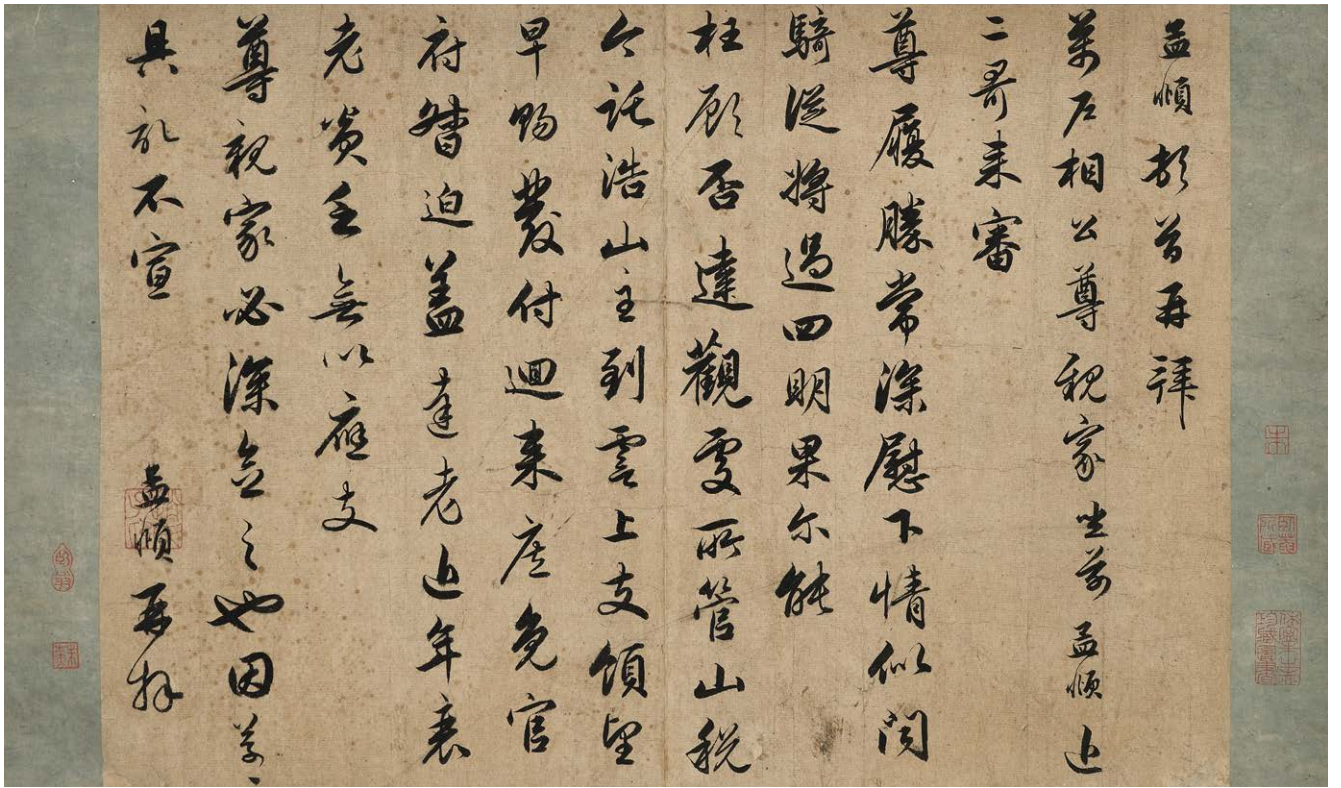 孟頫頓首再拜
萬戶相公尊親家坐前孟頫近
二哥来審
尊履勝常深慰下情似聞
騎從將過四明果尔能
枉顧否達觀處所管山稅
今託浩山主到雲上支領望
早賜發付迴来庶免官
府督迫盖達老近年衰
老資主無以應支
尊親家必深念之也因草草
具記不宣
孟頫再拜